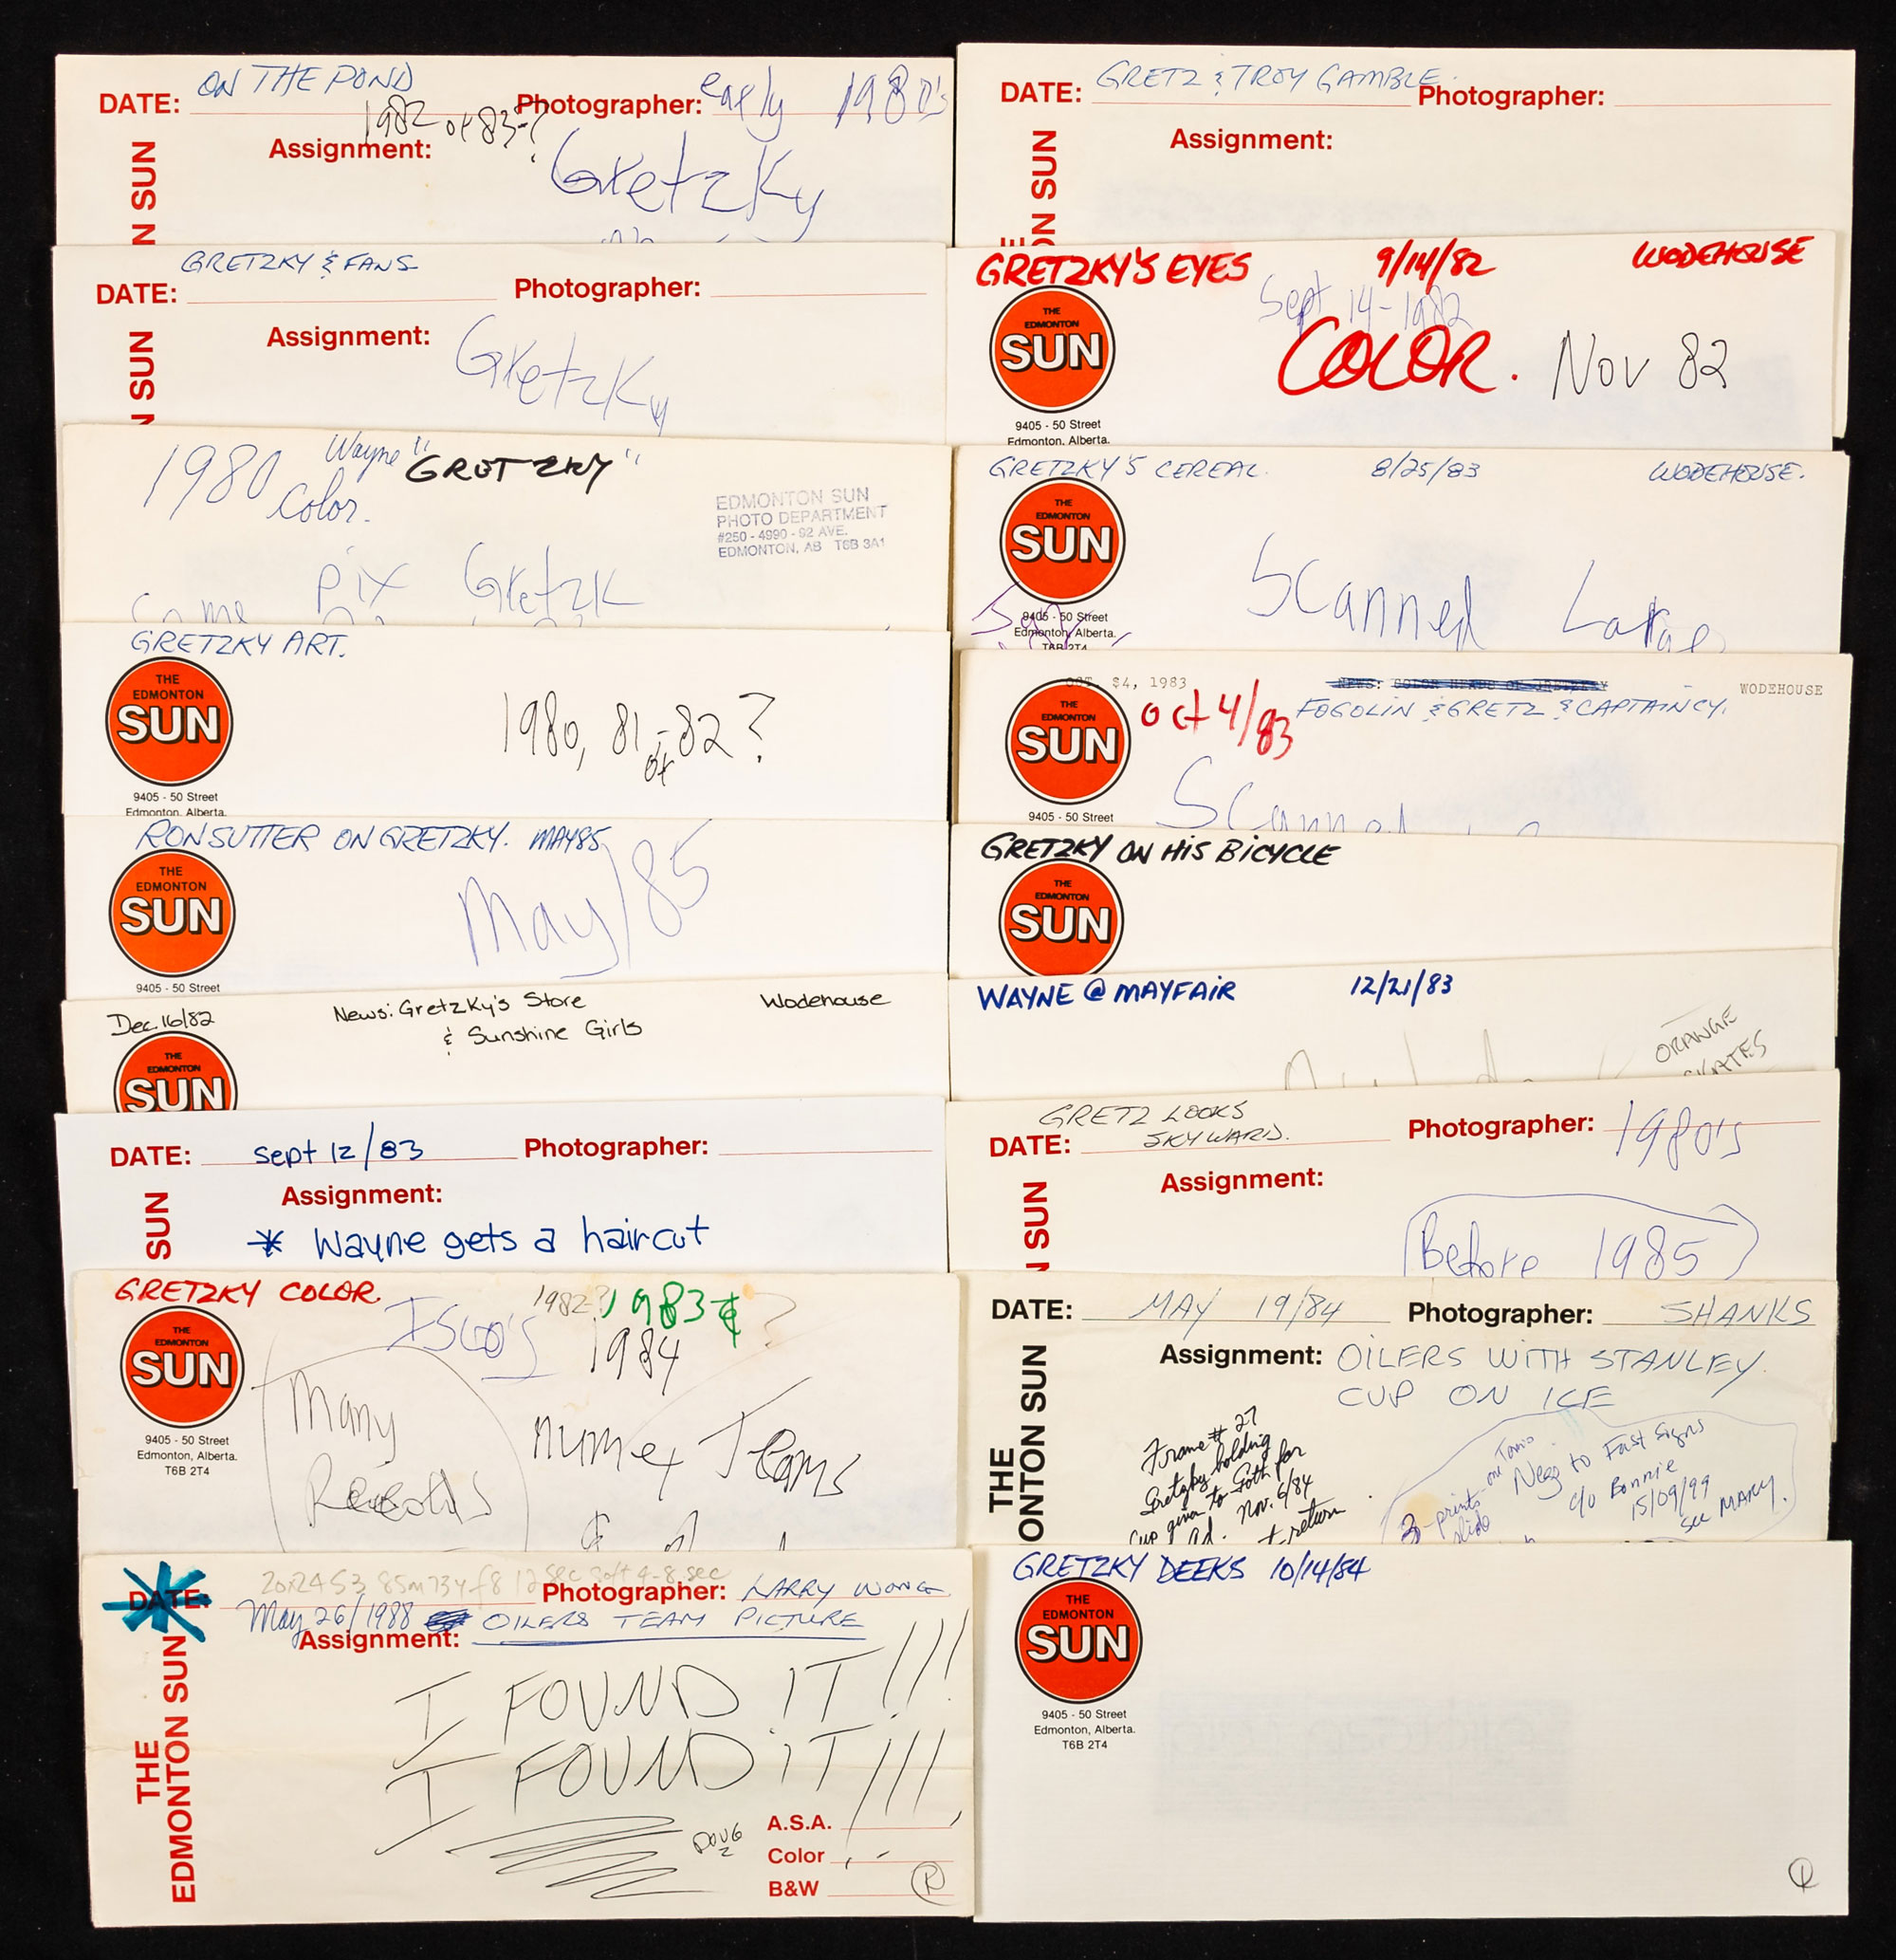 ON THE POND
DATE:
1982 or 83-?
Photographer: early 1980's
Assignment:
Gretzky
N SUN
GRETZKY & FANS
DATE:
Photographer:
Assignment:
Gretzky
N SUN
1980 Wayne "GRETZKY"
Color.
EDMONTON SUN
PHOTO DEPARTMENT
#250 - 4990 - 92 AVE.
EDMONTON, AB T6B 3A1
Some pix Gretzk
GRETZKY ART.
THE
EDMONTON
SUN
9405 - 50 Street
Edmonton, Alberta.
1980, 81 or 82?
RON SUTTER ON GRETZKY. MAY 85
THE
EDMONTON
SUN
9405 - 50 Street
May/85
Dec. 16/82
News: Gretzky's Store
& Sunshine Girls
Wodehouse
THE
EDMONTON
SUN
DATE: Sept 12/83
Photographer:
Assignment:
* Wayne gets a haircut
SUN
GRETZKY COLOR.
THE
EDMONTON
SUN
9405 - 50 Street
Edmonton, Alberta.
T6B 2T4
1982-? 1983 ?
1984
Many
Records
DATE:
May 26/1988 OILERS TEAM PICTURE
Photographer: LARRY WONG
Assignment:
THE
EDMONTON SUN
I FOUND IT!!!
I FOUND IT!!!
DOUG
A.S.A.
Color
B&W
R
GRETZ & TROY GAMBLE
DATE:
Photographer:
Assignment:
ON SUN
GRETZKY'S EYES 9/14/82 WODEHOUSE
THE
EDMONTON
SUN
9405 - 50 Street
Edmonton, Alberta.
Sept 14-1982
COLOR. Nov 82
GRETZKY'S CEREAL. 8/25/83 WODEHOUSE.
THE
EDMONTON
SUN
9405 - 50 Street
Edmonton, Alberta.
T6B 2T4
Scanned
OCT. $4, 1983
WODEHOUSE
Oct 4/83
FOGOLIN & GRETZ & CAPTAINCY.
THE
EDMONTON
SUN
9405 - 50 Street
Scanned
GRETZKY ON HIS BICYCLE
THE
EDMONTON
SUN
WAYNE @ MAYFAIR 12/21/83
ORANGE
SKATES
GRETZ LOOKS
SKYWARD.
DATE:
Photographer: 1980's
Assignment:
SUN
Before 1985
DATE: MAY 19/84
Photographer: SHANKS
Assignment: OILERS WITH STANLEY
CUP ON ICE
THE
ONTON SUN
Frame # 27
Gretzky holding
Cup given to Goth for
ad. Nov. 6/84
return
3-prints
Neg to Fast Signs
c/o Bonnie
15/09/99
see MARY.
GRETZKY DEEKS 10/14/84
THE
EDMONTON
SUN
9405 - 50 Street
Edmonton, Alberta.
T6B 2T4